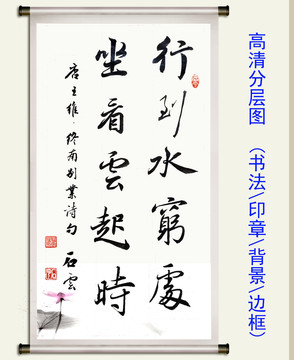 行到水窮處
坐看雲起時
唐王維·終南别業詩句
石雲
高清分层图（书法/印章/背景/边框）